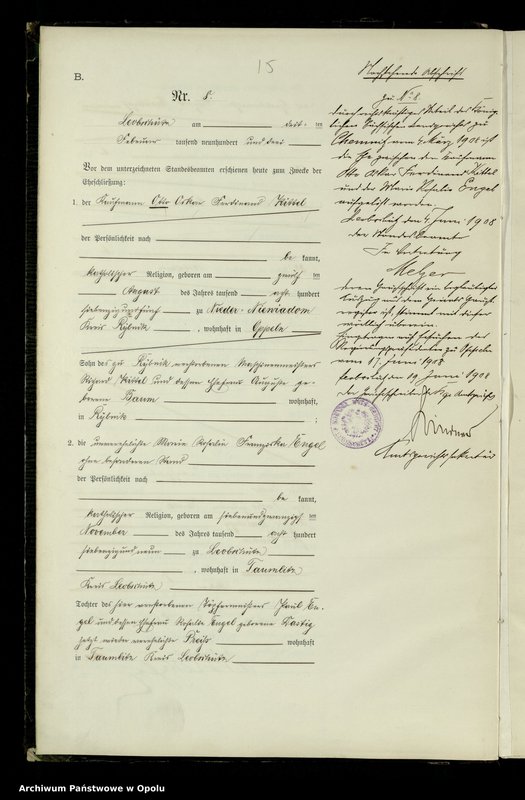 15
B.
Nr. 8.
Leobschütz am
Februar tausend neunhundert und drei
Vor dem unterzeichneten Standesbeamten erschienen heute zum Zwecke der
Eheschließung:
1. der Kaufmann Otto Oskar Ferdinand Kittel
der Persönlichkeit nach
be kannt,
katholischer Religion, geboren am
August des Jahres tausend acht hundert
siebenzig und fünf zu Nieder-Niewiadom
Kreis Rybnik, wohnhaft in Oppeln
Sohn des zu Rybnik verstorbenen
Kittel und dessen Ehefrau Auguste ge-
borene Baum wohnhaft,
in Rybnik ;
2. die unverehelichte Maria Rosalie Franziska Engel
ohne besonderen Stand
der Persönlichkeit nach
be kannt,
katholischer Religion, geboren am siebenundzwanzigsten
November des Jahres tausend acht hundert
siebenzig und neun zu Leobschütz
, wohnhaft in Taumlitz
Kreis Leobschütz
Tochter des hier verstorbenen Töpfermeisters Paul En-
gel und dessen Ehefrau Rosalie Engel geborene
jetzt wieder verehelichte wohnhaft
in Taumlitz Kreis Leobschütz
Nachstehende Abschrift
Zu No 8.
durch rechtskräftiges Urteil des König-
lichen Landgerichts zu
Chemnitz vom März 1908 ist
die Ehe zwischen dem Kaufmann
Otto Oskar Ferdinand Kittel
und der Maria Rosalie Engel
aufgelöst worden.
Leobschütz den Juni 1908
Der Standesbeamte
In Vertretung
Melzer
deren
vom 17. Juni 1908
Leobschütz den 19. Juni 1908
Der Gerichtsschreiber des Kgl. Amtsgerichts
Amtsgerichtssekretär
Archiwum Państwowe w Opolu